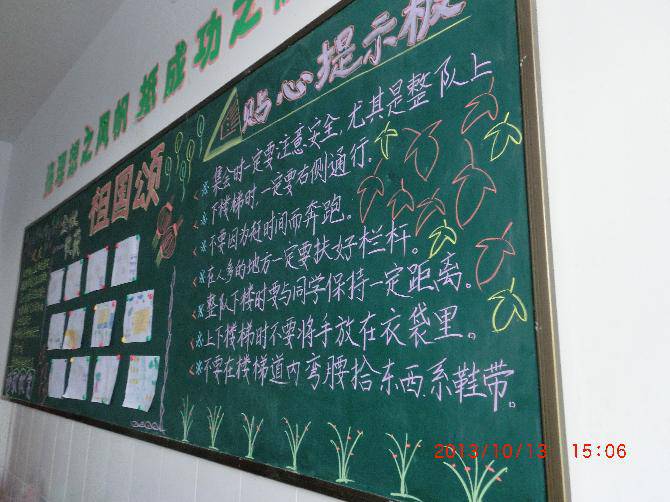 理想之风帆 基成功之
贴心提示板
祖国颂
集会时一定要注意安全,尤其是整队上
下楼梯时,一定要右侧通行。
不要因为赶时间而奔跑。
在人多的地方一定要扶好栏杆。
整队下楼时要与同学保持一定距离。
上下楼梯时不要将手放在衣袋里。
不要在楼梯道内弯腰拾东西、系鞋带。
2013/10/13 15:06